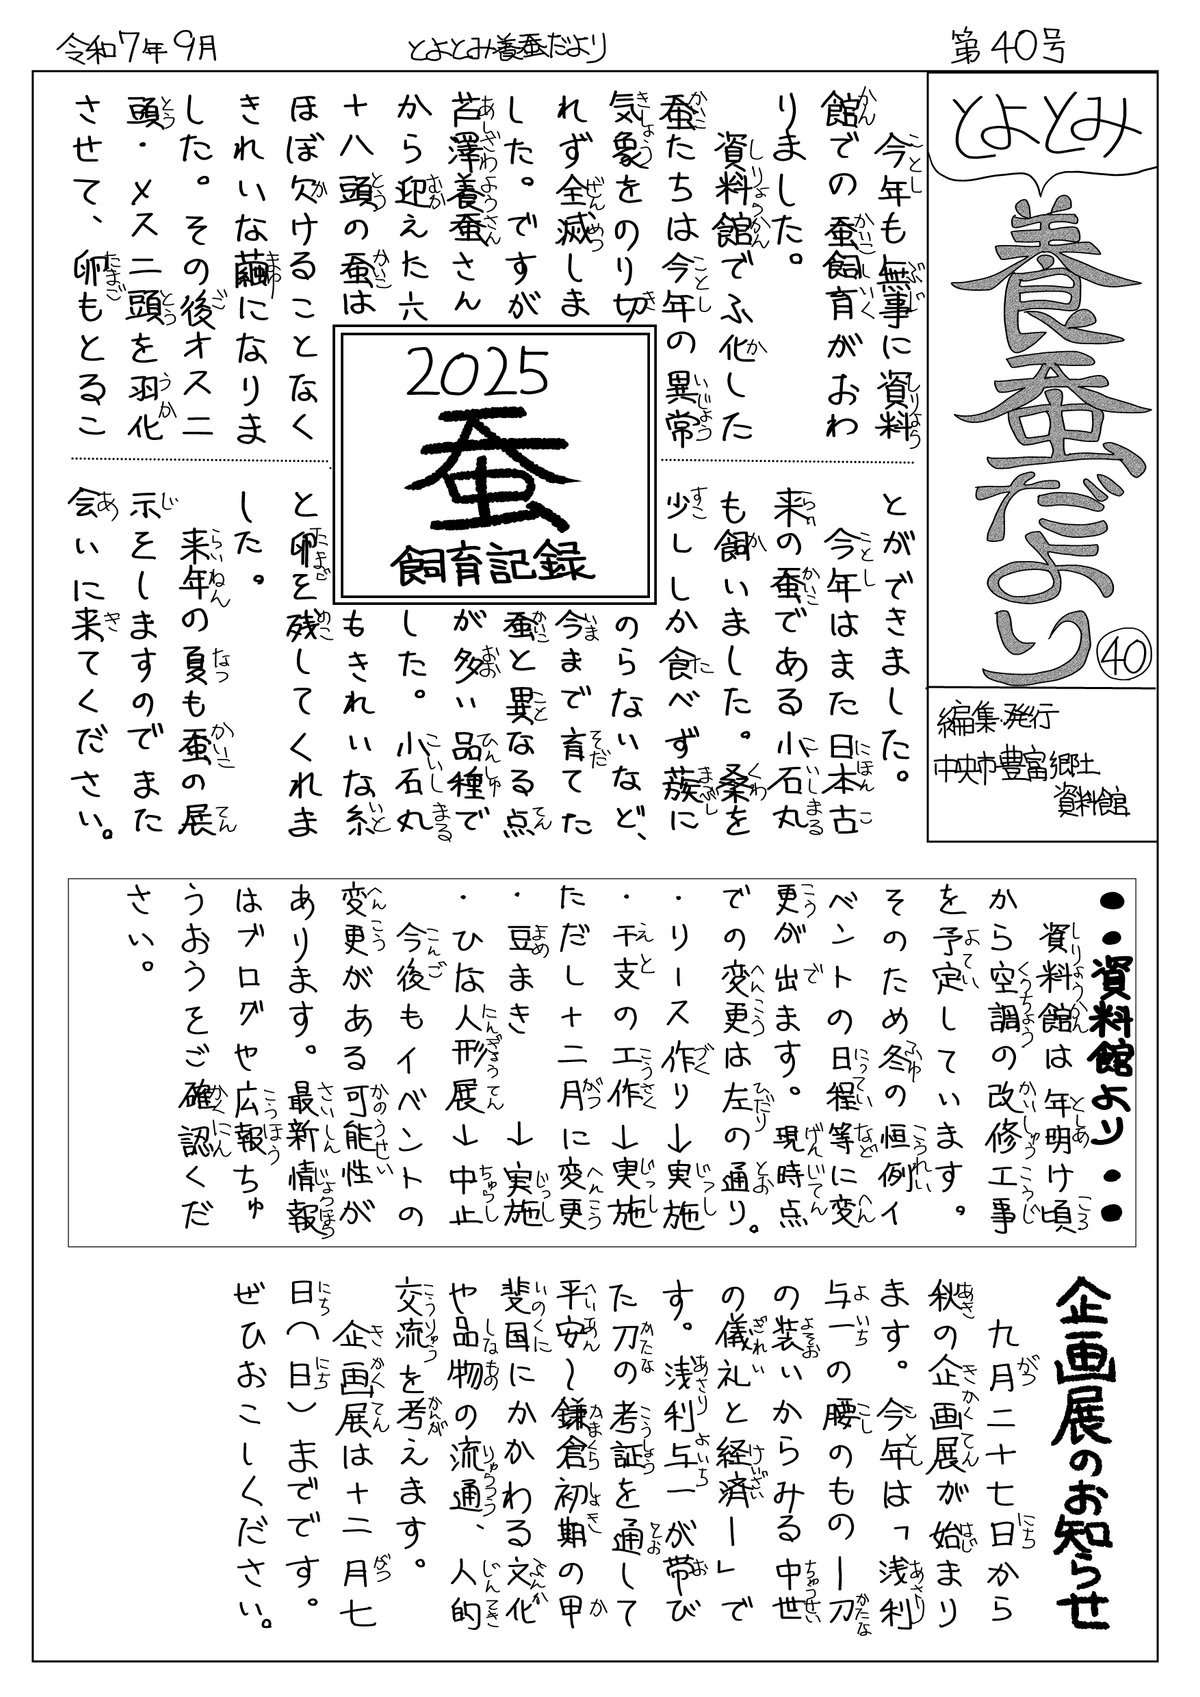 令和7年9月
とよとみ養蚕だより
第40号
とよとみ
養蚕だより
40
編集・発行
中央市豊富郷土
資料館
2025
蚕
飼育記録
今年も無事に資料
館での蚕飼育がおわ
りました。
資料館でふ化した
蚕たちは今年の異常
気象をのり切
れず全滅しま
した。ですが
芦澤養蚕さん
から迎えた六
十八頭の蚕は
ほぼ欠けることなく
きれいな繭になりま
した。その後オス二
頭・メス二頭を羽化
させて、卵もとるこ
とができました。
今年はまた日本古
来の蚕である小石丸
も飼いました。桑を
少ししか食べず蔟に
のらないなど、
今まで育てた
蚕と異なる点
が多い品種で
した。小石丸
もきれいな糸
と卵を残してくれま
した。
来年の夏も蚕の展
示をしますのでまた
会いに来てください。
●・資料館より・●
資料館は年明け頃
から空調の改修工事
を予定しています。
そのため冬の恒例イ
ベントの日程等に変
更が出ます。現時点
での変更は左の通り。
・リース作り→実施
・干支の工作→実施
ただし十二月に変更
・豆まき　→実施
・ひな人形展→中止
今後もイベントの
変更がある可能性が
あります。最新情報
はブログや広報ちゅ
うおうをご確認くだ
さい。
企画展のお知らせ
九月二十七日から
秋の企画展が始まり
ます。今年は「浅利
与一の腰のもの―刀
の装いからみる中世
の儀礼と経済―」で
す。浅利与一が帯び
た刀の考証を通して
平安~鎌倉初期の甲
斐国にかかわる文化
や品物の流通、人的
交流を考えます。
企画展は十二月七
日(日)までです。
ぜひおこしください。